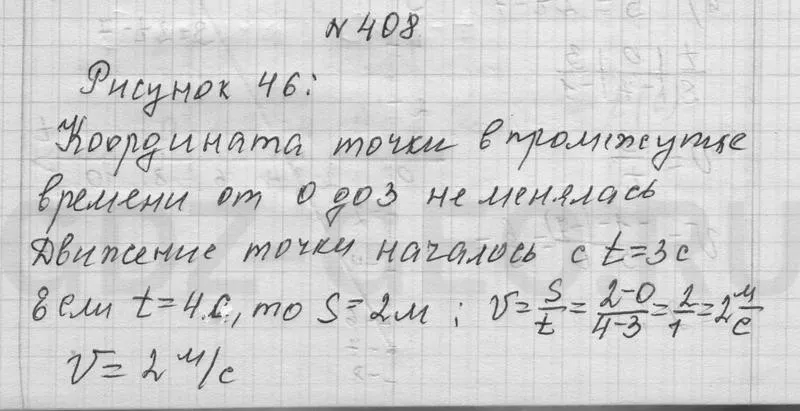 № 408
Рисунок 46:
Координата точки в промежутке
времени от 0 до 3 не менялась
Движение точки началось с t=3с
Если t=4с., то S=2м; V=S/t=2-0/4-3=2/1=2 м/с
V=2 м/с